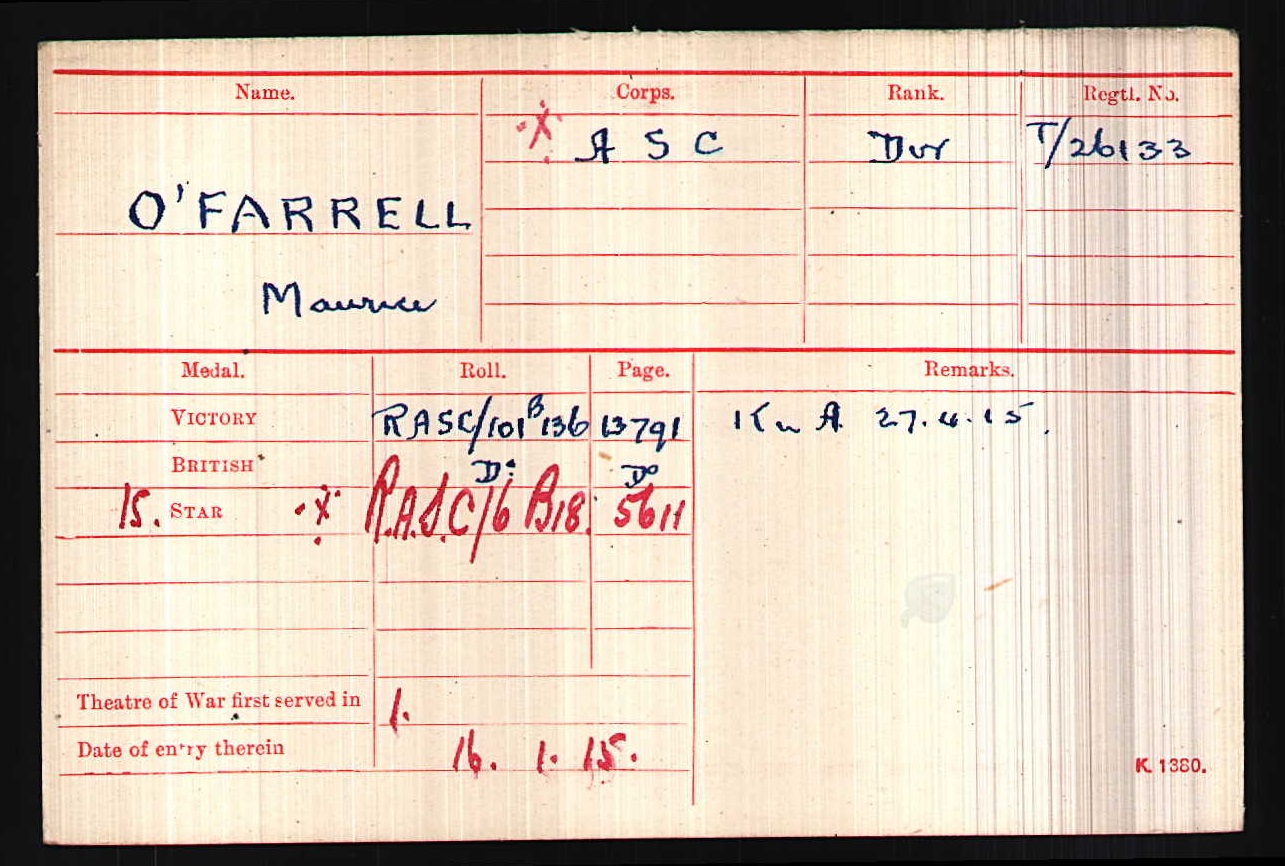 Name. Corps. Rank. Regtl. No.
A S C Dvr T/26133
O'FARRELL
Maurice
Medal. Roll. Page. Remarks.
VICTORY RASC/101B136 13791 K in A 27.4.15.
BRITISH Do Do
15. STAR R.A.S.C/6 B18. 5611
Theatre of War first served in 1.
Date of entry therein 16. 1. 15.
K. 1380.